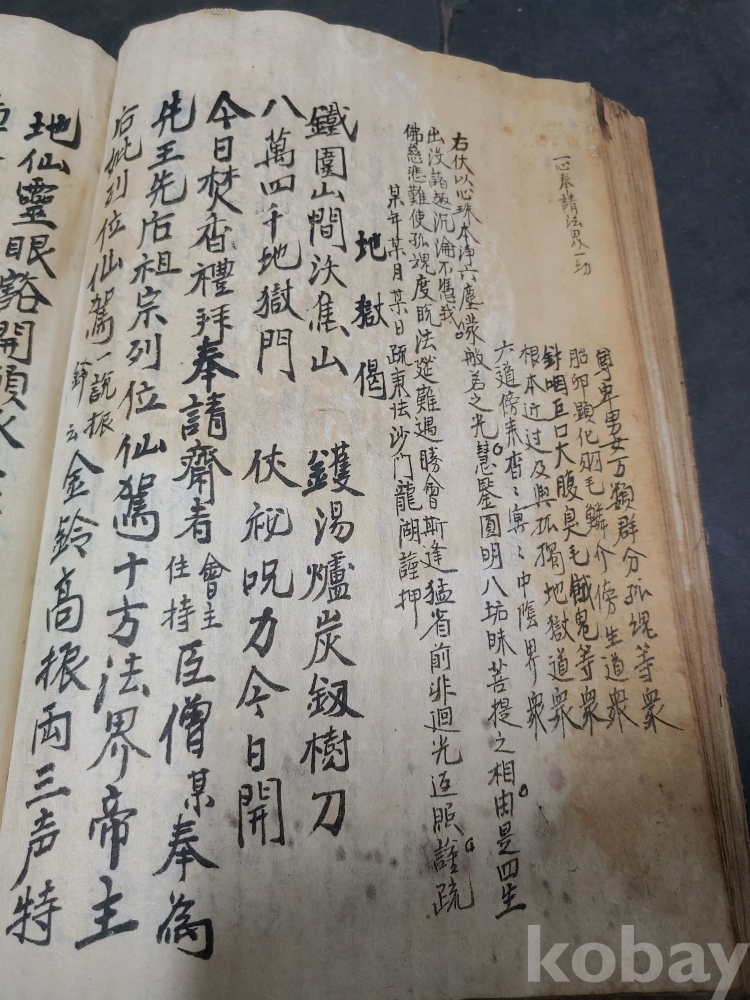 一心奉請法界一切
尊卑男女万類群分孤魂等衆
胎卵顕化羽毛鱗介傍生道衆
針咽巨口大腹臭毛餓鬼等衆
根本近过及與孤獨地獄道衆
六道傍来杳〻冥〻中陰界衆
右伏以心珠本浄六塵曚般若之光慧鑒圓明八垢昧菩提之相由是四生
出没諸趣沉淪不憑我
佛慈悲難使孤魂度脱法筵難遇勝會斯逢猛省前非迴光返照謹疏
某年某月某日疏東法沙門龍湖謹押
地獄偈
鐵圍山間沃焦山 鑊湯爐炭釼樹刀
八萬四千地獄門 仗秘呪力今日開
今日焚香禮拜奉請齋者會主住持臣僧某奉為
先王先后祖宗列位仙駕十方法界帝主
后妣列位仙駕一說振鈴云金鈴高振両三声特
地仙靈眼豁開須